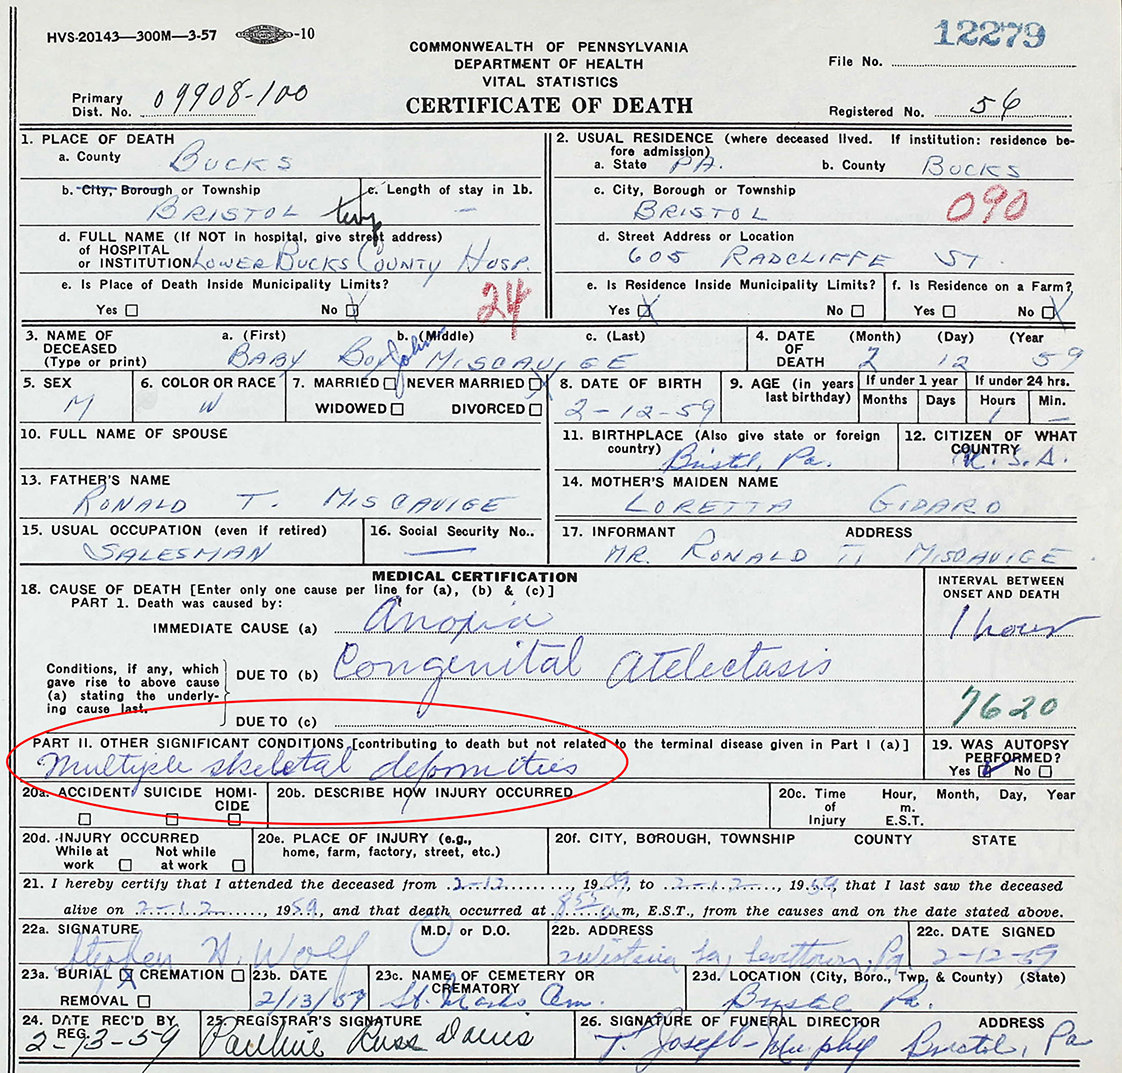 HVS-20143—300M—3-57 -10
12279
COMMONWEALTH OF PENNSYLVANIA
DEPARTMENT OF HEALTH
VITAL STATISTICS
CERTIFICATE OF DEATH
File No.
Primary
Dist. No. 09908-100
Registered No. 56
1. PLACE OF DEATH
a. County BUCKS
2. USUAL RESIDENCE (where deceased lived. If institution: residence be-
fore admission)
a. State PA. b. County BUCKS
b. City, Borough or Township BRISTOL twp
c. Length of stay in 1b. —
c. City, Borough or Township
BRISTOL 090
d. FULL NAME (If NOT in hospital, give street address)
of HOSPITAL
or INSTITUTION LOWER BUCKS COUNTY HOSP.
d. Street Address or Location
605 RADCLIFFE ST.
e. Is Place of Death Inside Municipality Limits?
Yes No X
24
e. Is Residence Inside Municipality Limits?
Yes X No
f. Is Residence on a Farm?
Yes No X
3. NAME OF
DECEASED
(Type or print)
a. (First) b. (Middle) c. (Last)
BABY BOY John MISCAVIGE
4. DATE
OF
DEATH
(Month) (Day) (Year
2 12 59
5. SEX
M
6. COLOR OR RACE
W
7. MARRIED NEVER MARRIED X
WIDOWED DIVORCED
8. DATE OF BIRTH
2-12-59
9. AGE (in years
last birthday)
If under 1 year
Months Days
If under 24 hrs.
Hours Min.
1 —
10. FULL NAME OF SPOUSE
11. BIRTHPLACE (Also give state or foreign
country) Bristol, Pa.
12. CITIZEN OF WHAT
COUNTRY
U.S.A.
13. FATHER'S NAME
RONALD T. MISCAVIGE
14. MOTHER'S MAIDEN NAME
LORETTA GIDARO
15. USUAL OCCUPATION (even if retired)
SALESMAN
16. Social Security No..
—
17. INFORMANT ADDRESS
MR. RONALD T. MISCAVIGE
MEDICAL CERTIFICATION
18. CAUSE OF DEATH [Enter only one cause per line for (a), (b) & (c)]
PART 1. Death was caused by:
INTERVAL BETWEEN
ONSET AND DEATH
IMMEDIATE CAUSE (a) Anoxia 1 hour
Conditions, if any, which
gave rise to above cause
(a) stating the underly-
ing cause last.
DUE TO (b) Congenital Atelectasis
DUE TO (c)
7620
PART II. OTHER SIGNIFICANT CONDITIONS [contributing to death but not related to the terminal disease given in Part I (a)]
Multiple skeletal deformities
19. WAS AUTOPSY
PERFORMED?
Yes No
20a. ACCIDENT SUICIDE HOMI-
CIDE
20b. DESCRIBE HOW INJURY OCCURRED
20c. Time
of
Injury
Hour, Month, Day, Year
m.
E.S.T.
20d. INJURY OCCURRED
While at
work
Not while
at work
20e. PLACE OF INJURY (e.g.,
home, farm, factory, street, etc.)
20f. CITY, BOROUGH, TOWNSHIP COUNTY STATE
21. I hereby certify that I attended the deceased from 2-12, 1959, to 2-12, 1959, that I last saw the deceased
alive on 2-12, 1959, and that death occurred at m, E.S.T., from the causes and on the date stated above.
22a. SIGNATURE M.D. or D.O.
Stephen H. Wolf
22b. ADDRESS
Levittown, Pa
22c. DATE SIGNED
2-12-59
23a. BURIAL X CREMATION
REMOVAL
23b. DATE
2/13/59
23c. NAME OF CEMETERY OR
CREMATORY
St. Marks Cem.
23d. LOCATION (City, Boro., Twp, & County) (State)
Bristol Pa.
24. DATE REC'D BY
REG.
2-13-59
25. REGISTRAR'S SIGNATURE
Pauline Russ Davis
26. SIGNATURE OF FUNERAL DIRECTOR ADDRESS
T. Joseph Murphy Bristol, Pa